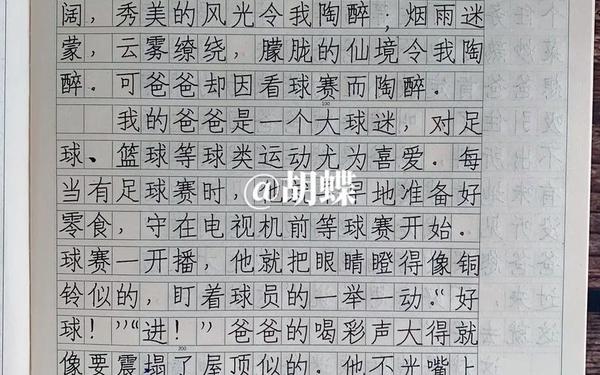 阔，秀美的风光令我陶醉；烟雨迷
蒙，云雾缭绕，朦胧的仙境令我陶
醉．可爸爸却因看球赛而陶醉．
100
我的爸爸是一个大球迷，对足
球、篮球等球类运动尤为喜爱．每
当有足球赛时，他 早地准备好
@胡蝶
零食，守在电视机前等球赛开始．
球赛一开播，他就把眼睛瞪得像铜
铃似的，盯着球员的一举一动．“好
球！”“进！”爸爸的喝彩声大得就
200
像要震塌了屋顶似的．他不光嘴上